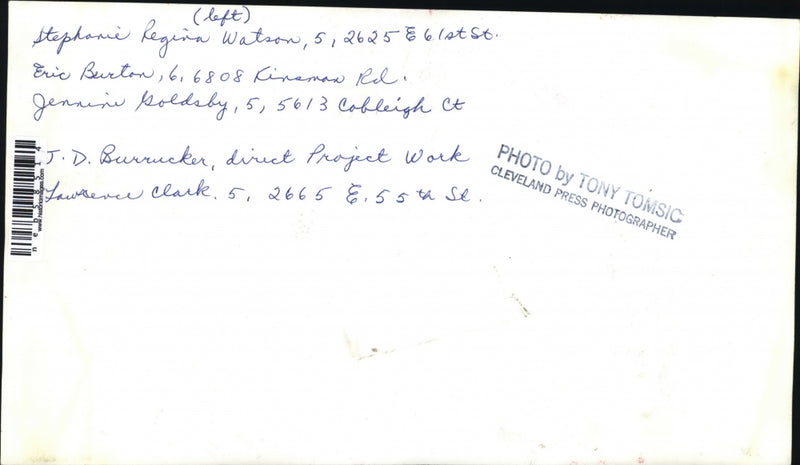 (left)
Stephanie Regina Watson, 5, 2625 E 61st St.
Eric Burton, 6, 6808 Kinsman Rd.
Jennine Goldsby, 5, 5613 Cobleigh Ct
J. D. Burrucker, direct Project Work
Lawrence Clark. 5, 2665 E. 55th St.
PHOTO by TONY TOMSIC
CLEVELAND PRESS PHOTOGRAPHER
www.historicimages.com